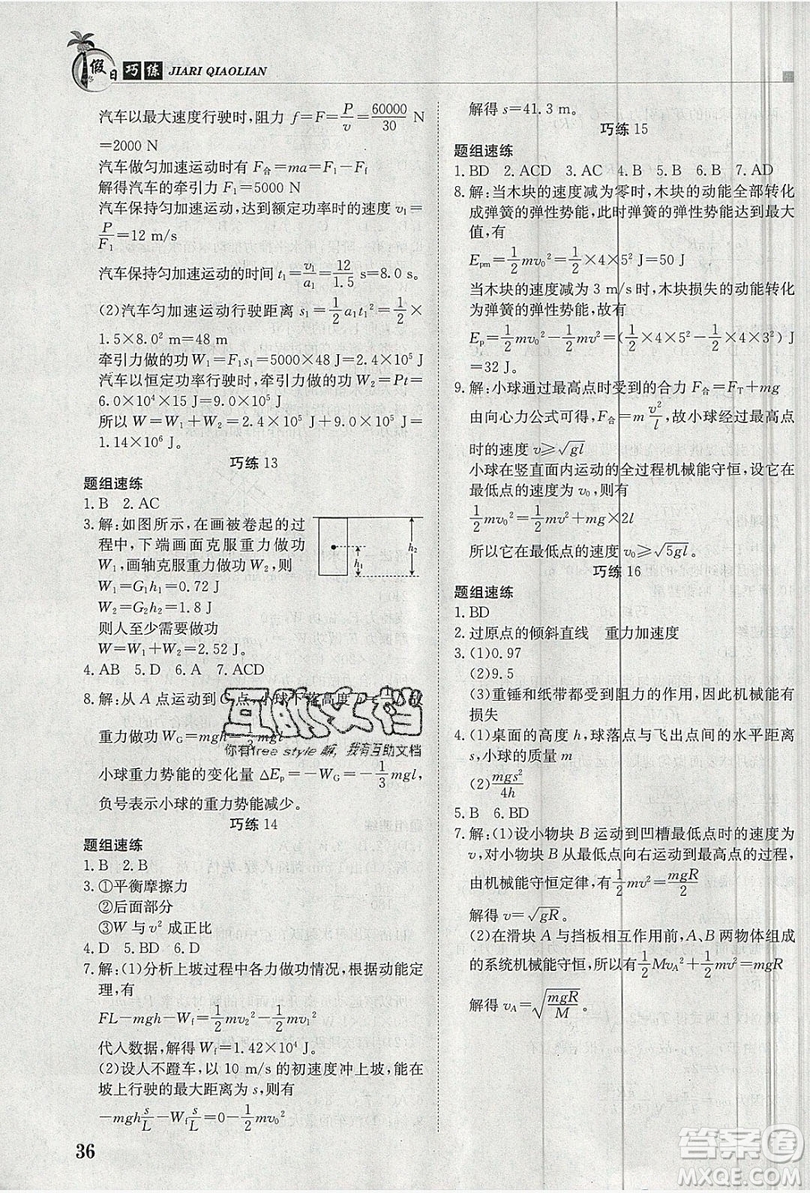 假日巧练 JIARI QIAOLIAN
汽车以最大速度行驶时,阻力 f=F=P/v=60000/30 N
=2000 N
汽车做匀加速运动时有 F合=ma=F₁-Ff
解得汽车的牵引力 F₁=5000 N
汽车保持匀加速运动,达到额定功率时的速度 v₁=
P/F₁=12 m/s
汽车保持匀加速运动的时间 t₁=v₁/a₁=12/1.5 s=8.0 s。
(2)汽车匀加速运动行驶距离 s₁=1/2 a₁t₁²=1/2×
1.5×8.0² m=48 m
牵引力做的功 W₁=F₁s₁=5000×48 J=2.4×10⁵ J
汽车以恒定功率行驶时,牵引力做的功 W₂=Pt=
6.0×10⁴×15 J=9.0×10⁵ J
所以 W=W₁+W₂=2.4×10⁵ J+9.0×10⁵ J=
1.14×10⁶ J。
巧练 13
题组速练
1. B 2. AC
3. 解:如图所示,在画被卷起的过
程中,下端画面克服重力做功
W₁,画轴克服重力做功 W₂,则
W₁=G₁h₁=0.72 J
W₂=G₂h₂=1.8 J
则人至少需要做功
W=W₁+W₂=2.52 J。
h₁
h₂
4. AB 5. D 6. A 7. ACD
8. 解:从 A 点运动到 C 点,小球下落高度 h=
重力做功 WG=mgh= mgl
小球重力势能的变化量 ΔEp=-WG=-1/3 mgl,
负号表示小球的重力势能减少。
巧练 14
题组速练
1. B 2. B
3. ①平衡摩擦力
②后面部分
③W 与 v² 成正比
4. D 5. BD 6. D
7. 解:(1)分析上坡过程中各力做功情况,根据动能定
理,有
FL-mgh-Wf=1/2 mv²-1/2 mv₀²
代人数据,解得 Wf=1.42×10⁴ J。
(2)设人不蹬车,以 10 m/s 的初速度冲上坡,能在
坡上行驶的最大距离为 s,则有
-mgh s/L-Wf s/L=0-1/2 mv₀²
36
解得 s=41.3 m。
巧练 15
题组速练
1. BD 2. ACD 3. D 4. D 5. B 6. BC 7. AD
8. 解:当木块的速度减为零时,木块的动能全部转化
成弹簧的弹性势能,此时弹簧的弹性势能达到最大
值,有
Epm=1/2 mv₀²=1/2×4×5² J=50 J
当木块的速度减为 3 m/s 时,木块损失的动能转化
为弹簧的弹性势能,故有
Ep=1/2 mv₀²-1/2 mv²=(1/2×4×5²-1/2×4×3²) J
=32 J。
9. 解:小球通过最高点时受到的合力 F合=FT+mg
由向心力公式可得:F合=m v²/l,故小球经过最高点
时的速度 v⩾√gl
小球在竖直面内运动的全过程机械能守恒,设其在
最低点的速度为 v₀,则有
1/2 mv₀²=1/2 mv²+mg×2l
所以它在最低点的速度 v₀⩾√5gl。
巧练 16
题组速练
1. BD
2. 过原点的倾斜直线 重力加速度
3. (1)0.97
(2)9.5
(3)重锤和纸带都受到阻力的作用,因此机械能有
损失
4. (1)桌面的高度 h,球落点与飞出点间的水平距离
s,小球的质量 m
(2)mgs²/4h
5. B 6. BD
7. 解:(1)设小物块 B 运动到凹槽最低点时的速度为
v,对小物块 B 从最低点向右运动到最高点的过程,
由机械能守恒定律,有 1/2 mv²=mgR/2
解得 v=√gR。
(2)在滑块 A 与挡板相互作用前,A、B 两物体组成
的系统机械能守恒,所以有 1/2 MvA²=mgR/2
解得 vA=√(mgR/M)。
互助文档
你有free style嘛,我有互助文档
答案圈
MXQE.COM